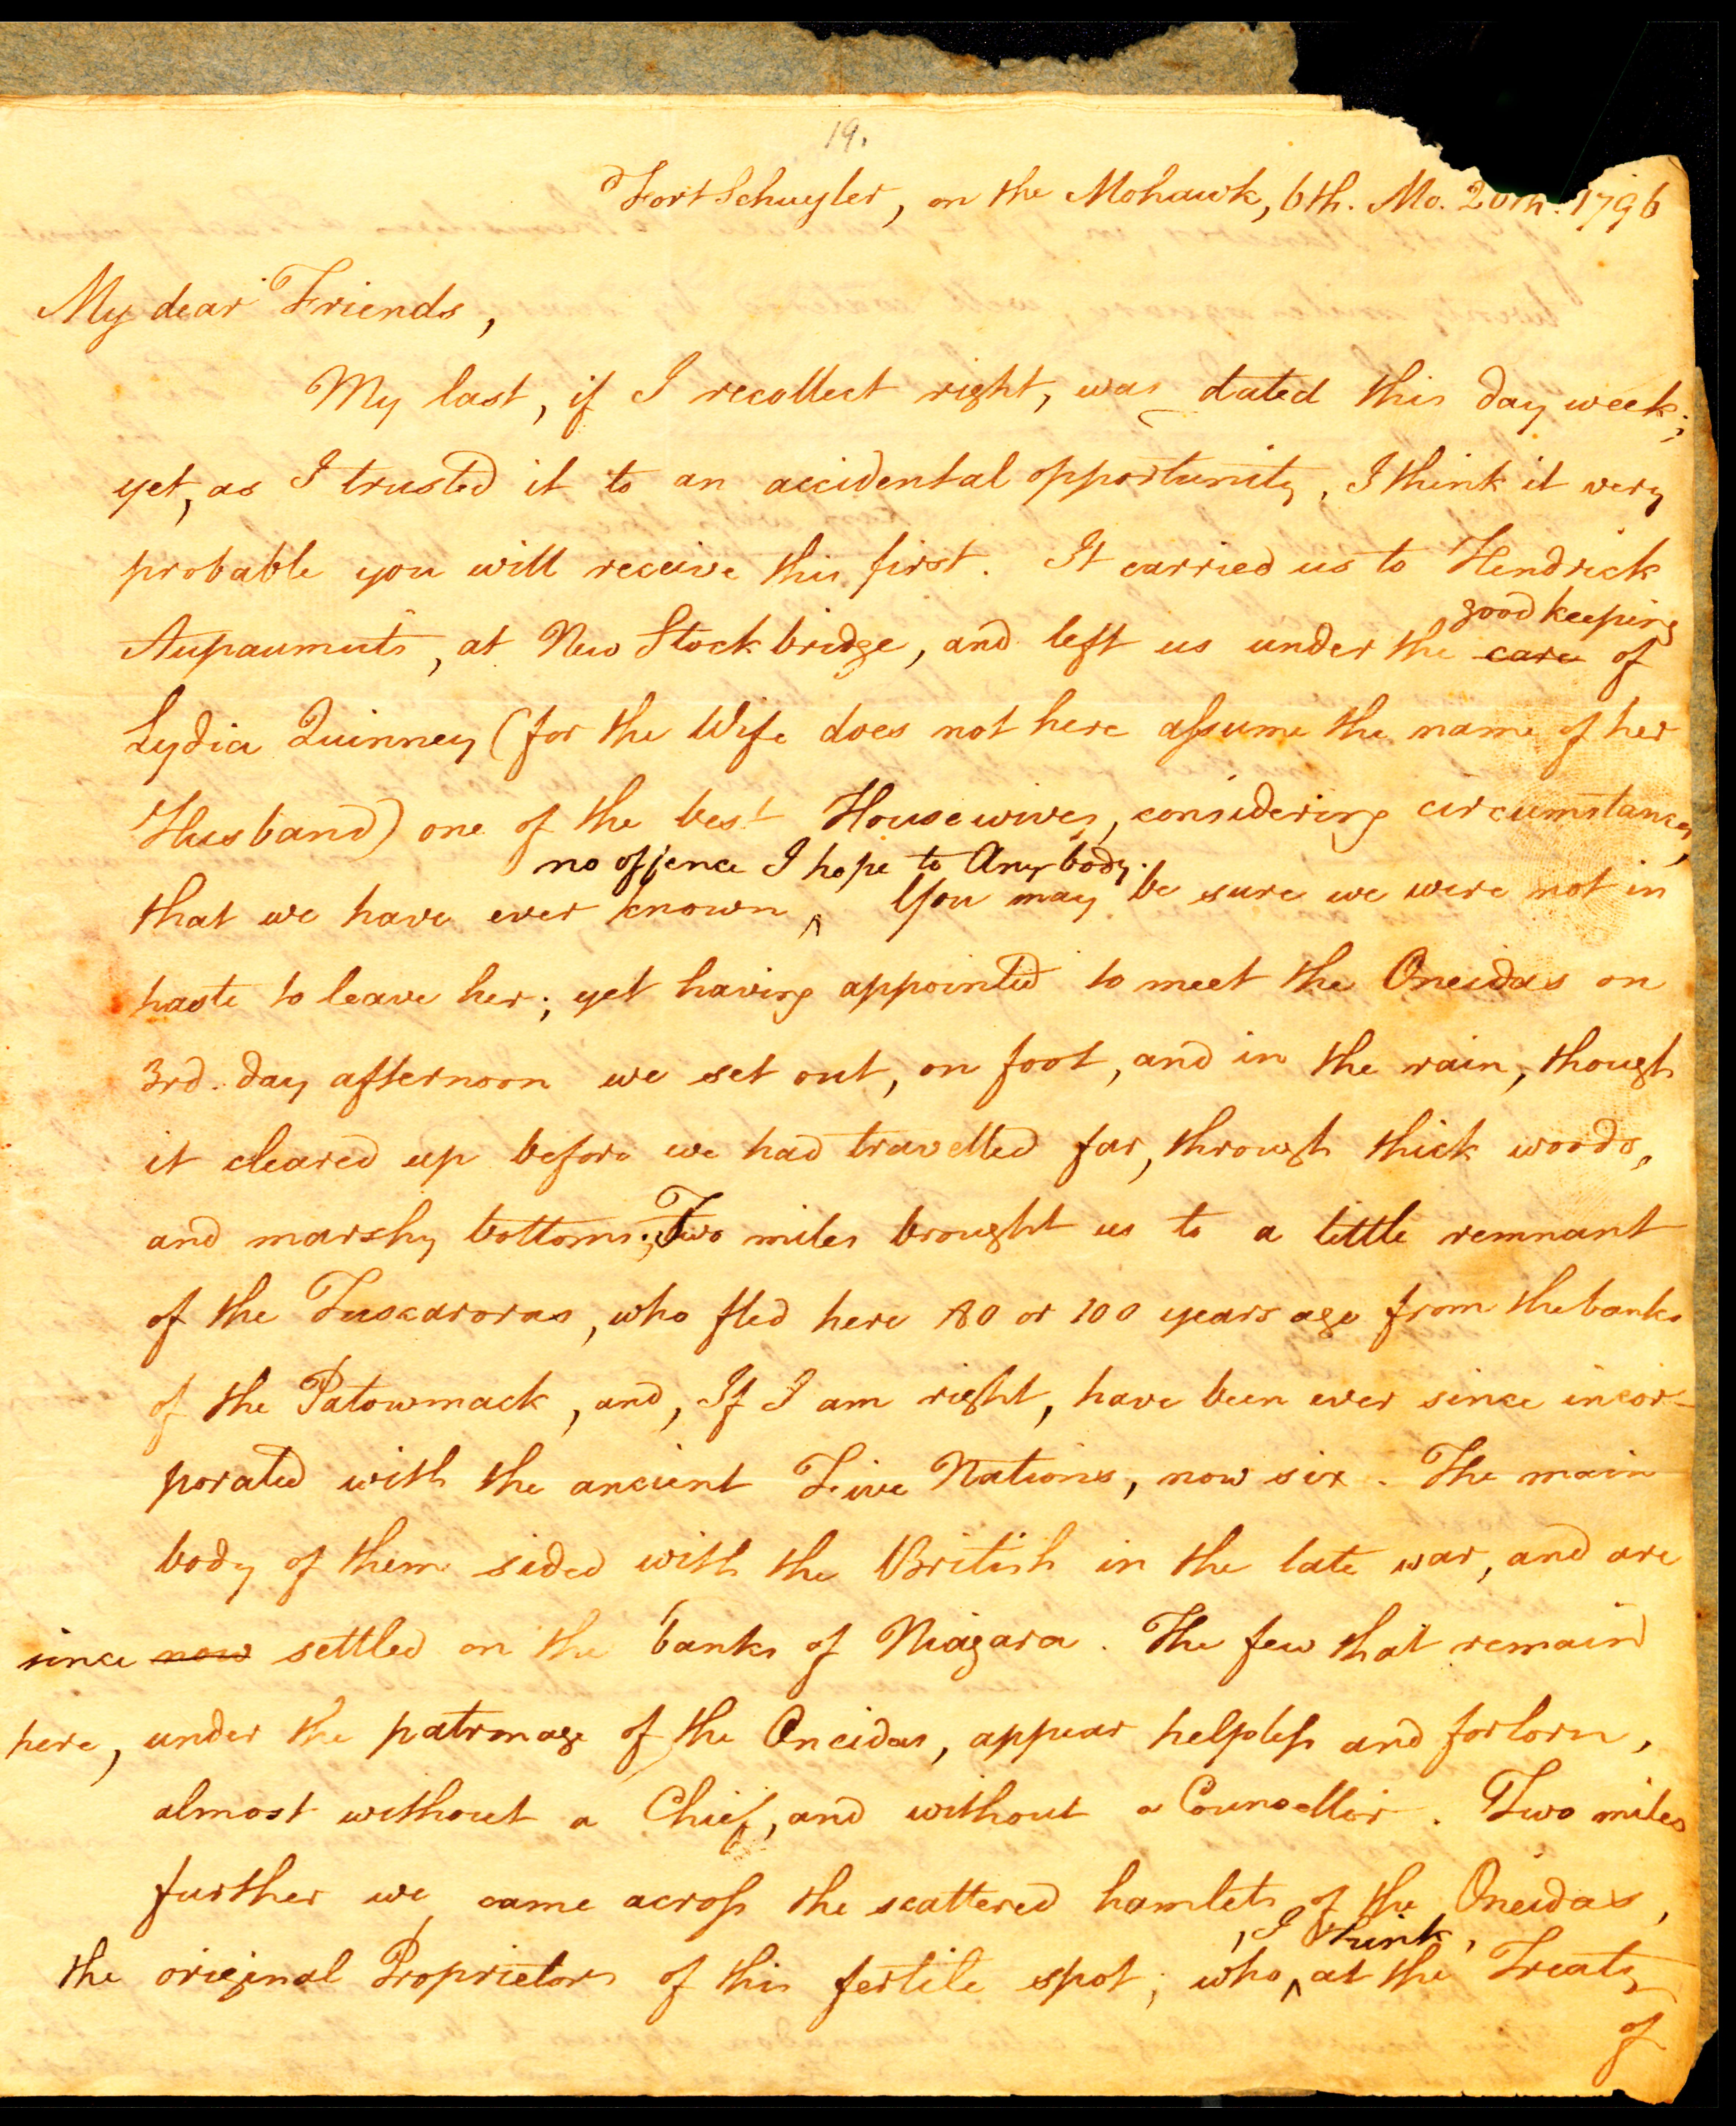 19.
Fort Schuyler, on the Mohawk, 6th. Mo. 20th. 1796
My dear Friends,
My last, if I recollect right, was dated this day week;
yet, as I trusted it to an accidental opportunity, I think it very
probable you will receive this first. It carried us to Hendrick
good keeping
Aupaumuts, at New Stockbridge, and left us under the care of
Lydia Quinney (for the Wife does not here assume the name of her
Husband) one of the best Housewives, considering circumstances,
no offence I hope to Any body.
that we have ever known ^ You may be sure we were not in
haste to leave her; yet having appointed to meet the Oneidas on
3rd. day afternoon we set out, on foot, and in the rain, though
it cleared up before we had travelled far, through thick woods,
and marshy bottoms. Two miles brought us to a little remnant
of the Tuscaroras, who fled here 80 or 100 years ago from the banks
of the Patowmack, and, If I am right, have been ever since incor-
porated with the ancient Five Nations, now six. The main
body of them sided with the British in the late war, and are
since now settled on the banks of Niagara. The few that remain
here, under the patronage of the Oneidas, appear helpless and forlorn,
almost without a Chief, and without a Councellor. Two miles
further we came across the scattered hamlets of the Oneidas,
, I think,
the original Proprietors of this fertile spot; who ^ at the Treaty
of